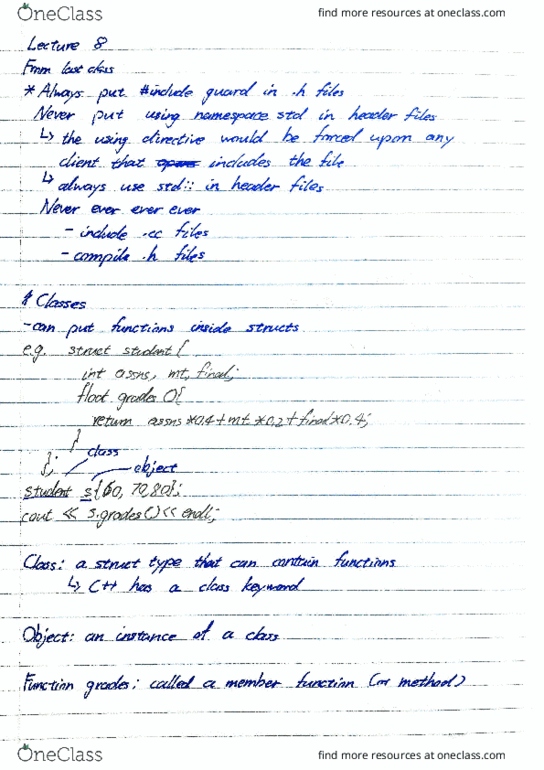 OneClass
find more resources at oneclass.com
Lecture 8
From last class
* Always put #include guard in .h files
Never put using namespace std in header files
↳ the using directive would be forced upon any
client that includes the file
↳ always use std:: in header files
Never ever ever ever
- include .cc files
- compile .h files
# Classes
- can put functions inside structs
e.g. struct student {
int assns, mt, final;
float grades () {
return assns *0.4 + mt *0.2 + final *0.4;
}
};
class
object
student s{60, 70, 80};
cout << s.grades() << endl;
Class: a struct type that can contain functions
↳ C++ has a class keyword
Object: an instance of a class
Function grades: called a member function (or method)
OneClass
find more resources at oneclass.com